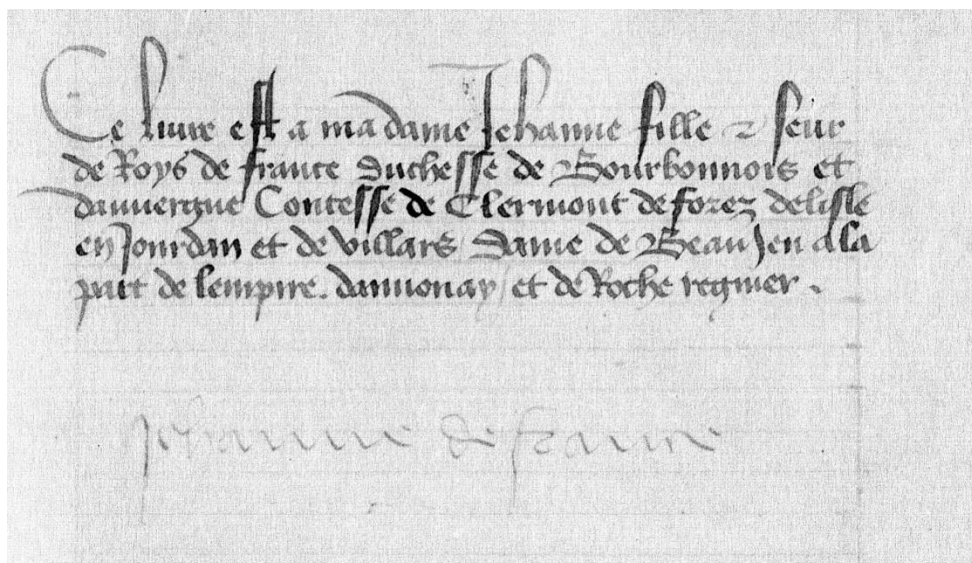 Ce liure est a ma dame Jehanne fille & seur
de Roys de france Duchesse de Bourbonnois et
dauuergne Contesse de Clermont de forez de lisle
en Jourdan et de villars Dame de BeauJeu a la
part de lempire. dannonay / et de Roche regnier.
Jehanne de france